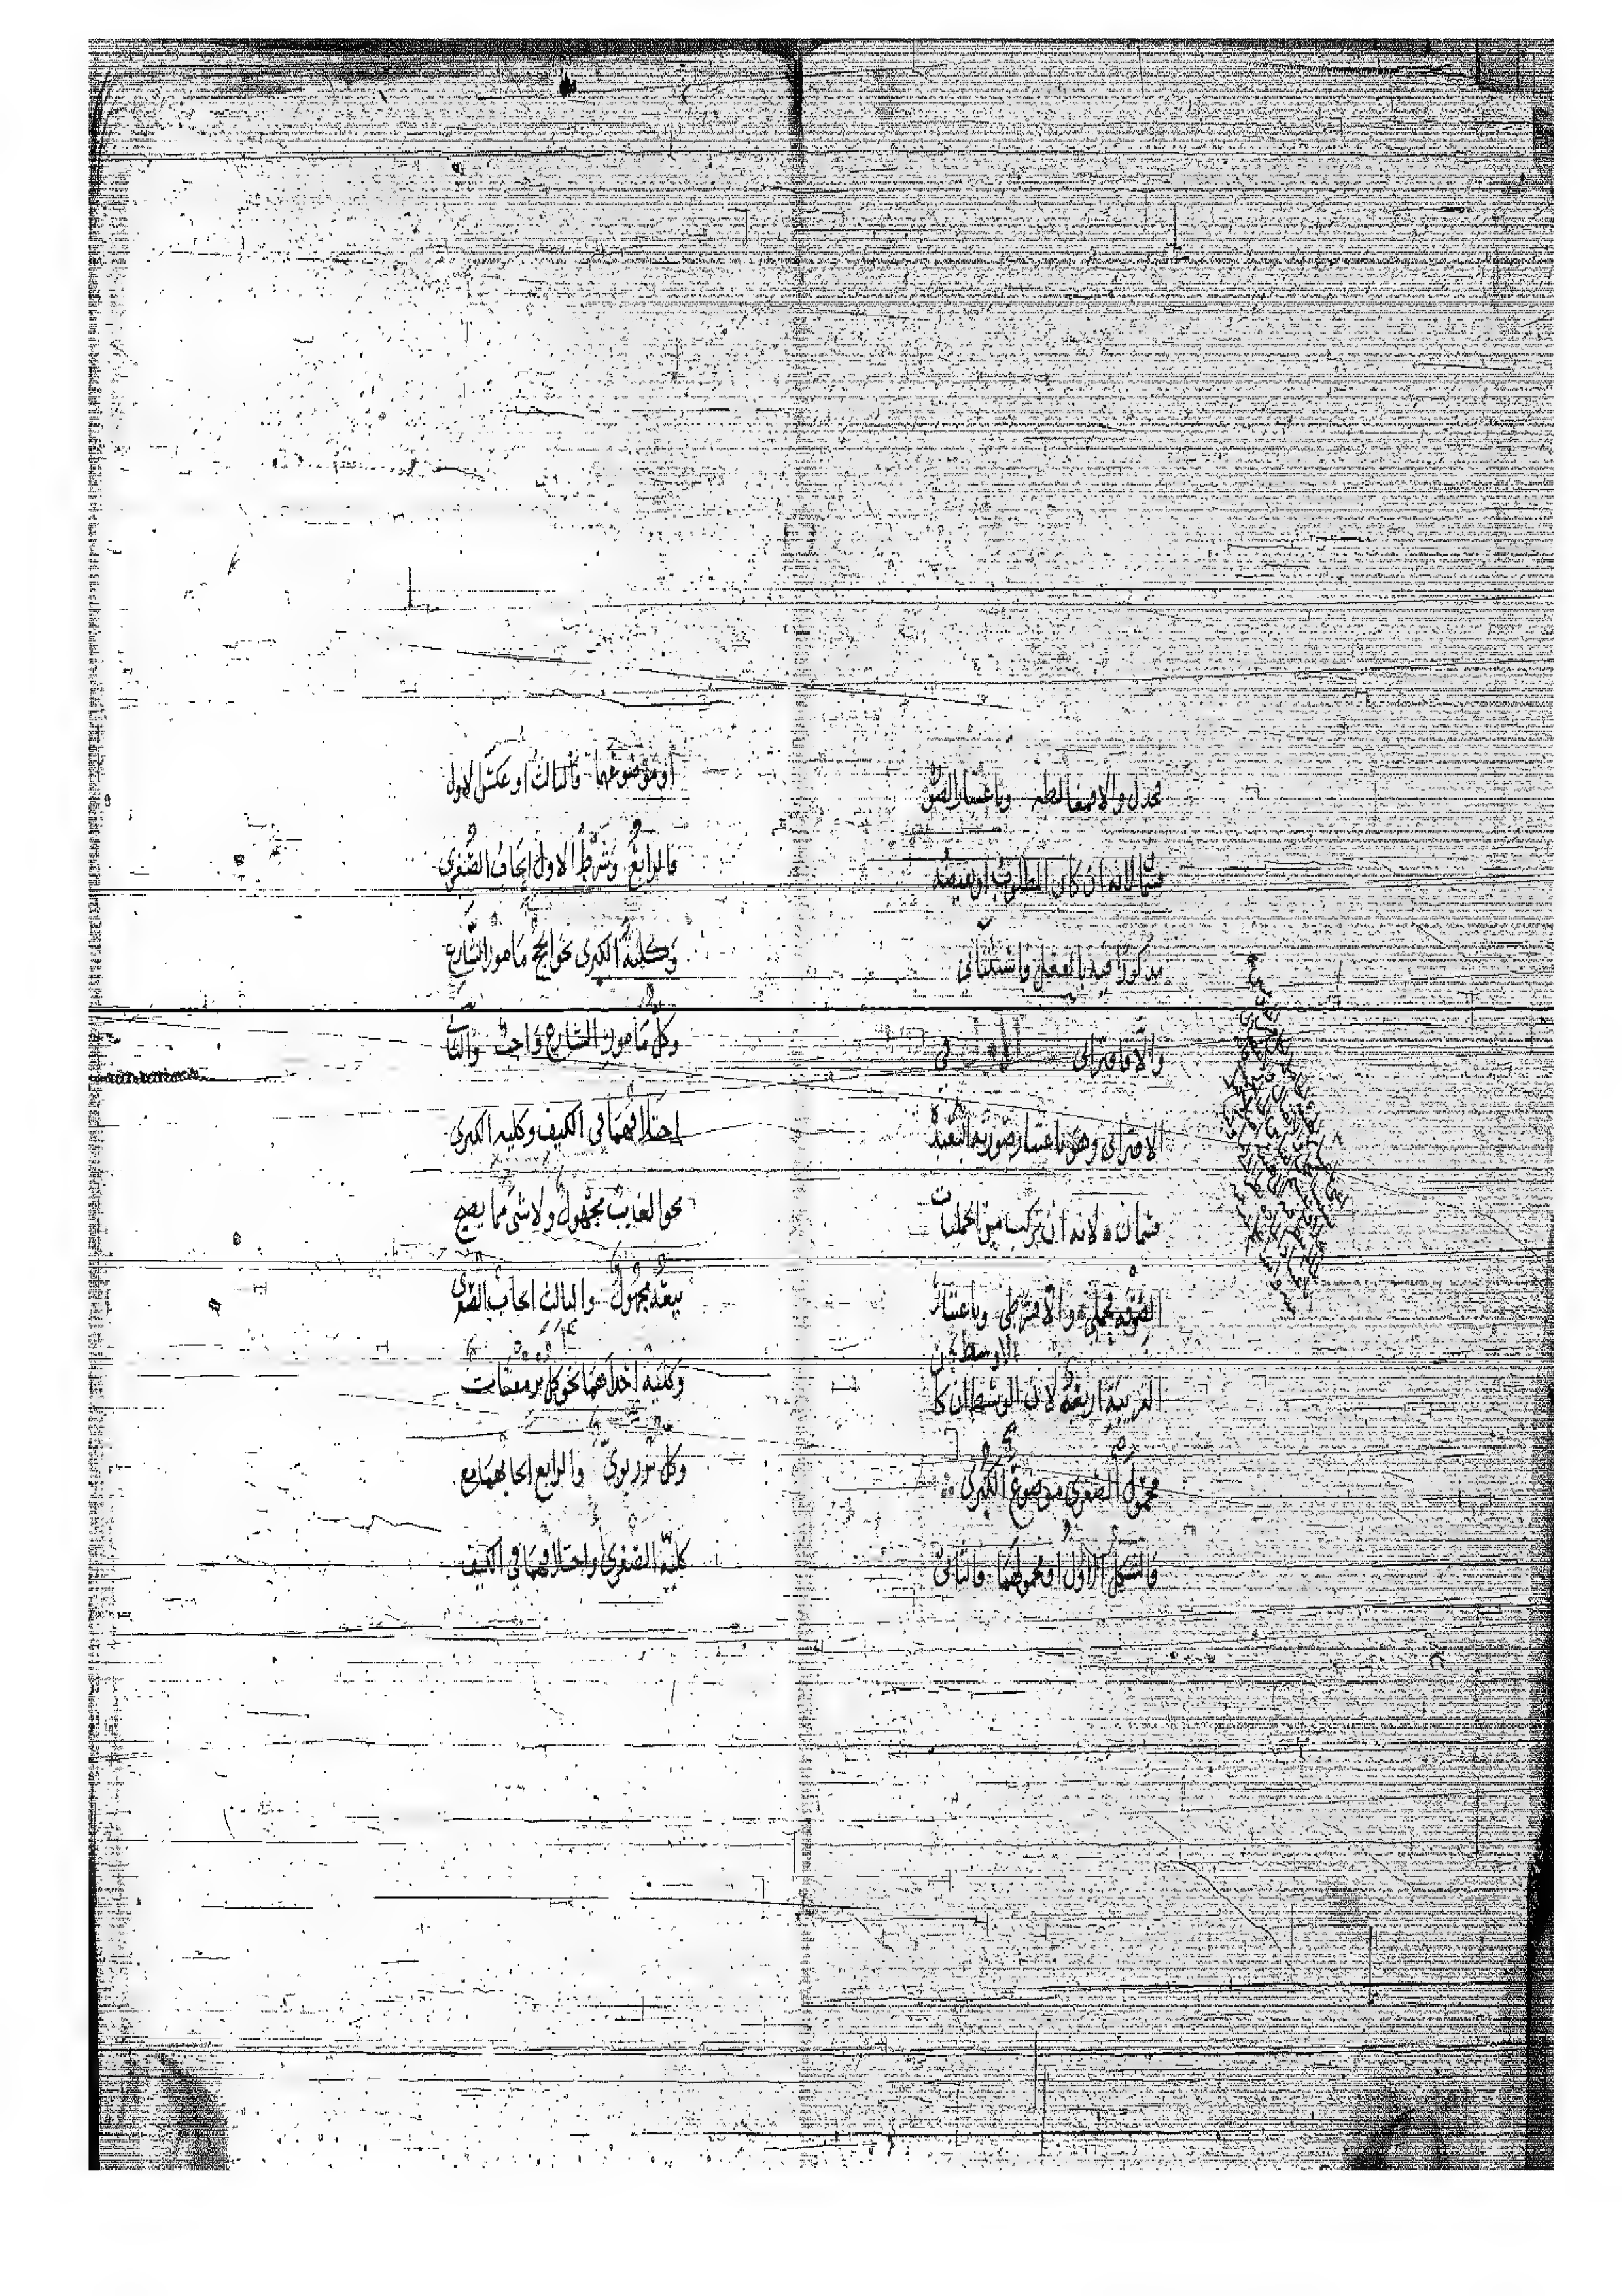 فجدل والا فمغالطه وباعتبار الصورة
قسمان لانه ان كان المطلوب او نقيضه
مذكورا فيه بالفعل فاستثنائى
والا فاقترانى الاول فى
الاقترانى وهو باعتبار صورته البعيدة
قسمان لانه ان تركب من الحمليات
الصرفه فحملي والا فشرطى وباعتبار
القريبة اربعة لان الوسط ان كا
الاوسط
محمول الصغرى موضوع الكبرى
فالشكل الاول او محمولهما فالثانى
او موضوعهما فالثالث او عكس الاول
فالرابع وشرط الاول ايجاب الصغرى
وكلية الكبرى نحو الحج مامور الشارع
وكل مامور الشارع واجب والثانى
اختلافهما فى الكيف وكليه الكبرى
نحو الغايب مجهول ولا شى مما يصح
بيعه بمجهول والثالث ايجاب الصغرى
وكليه احداهما نحو كل بر مقتات
وكل بر ربوى والرابع ايجابهما مع
كلية الصغرى او اختلافهما فى الكيف